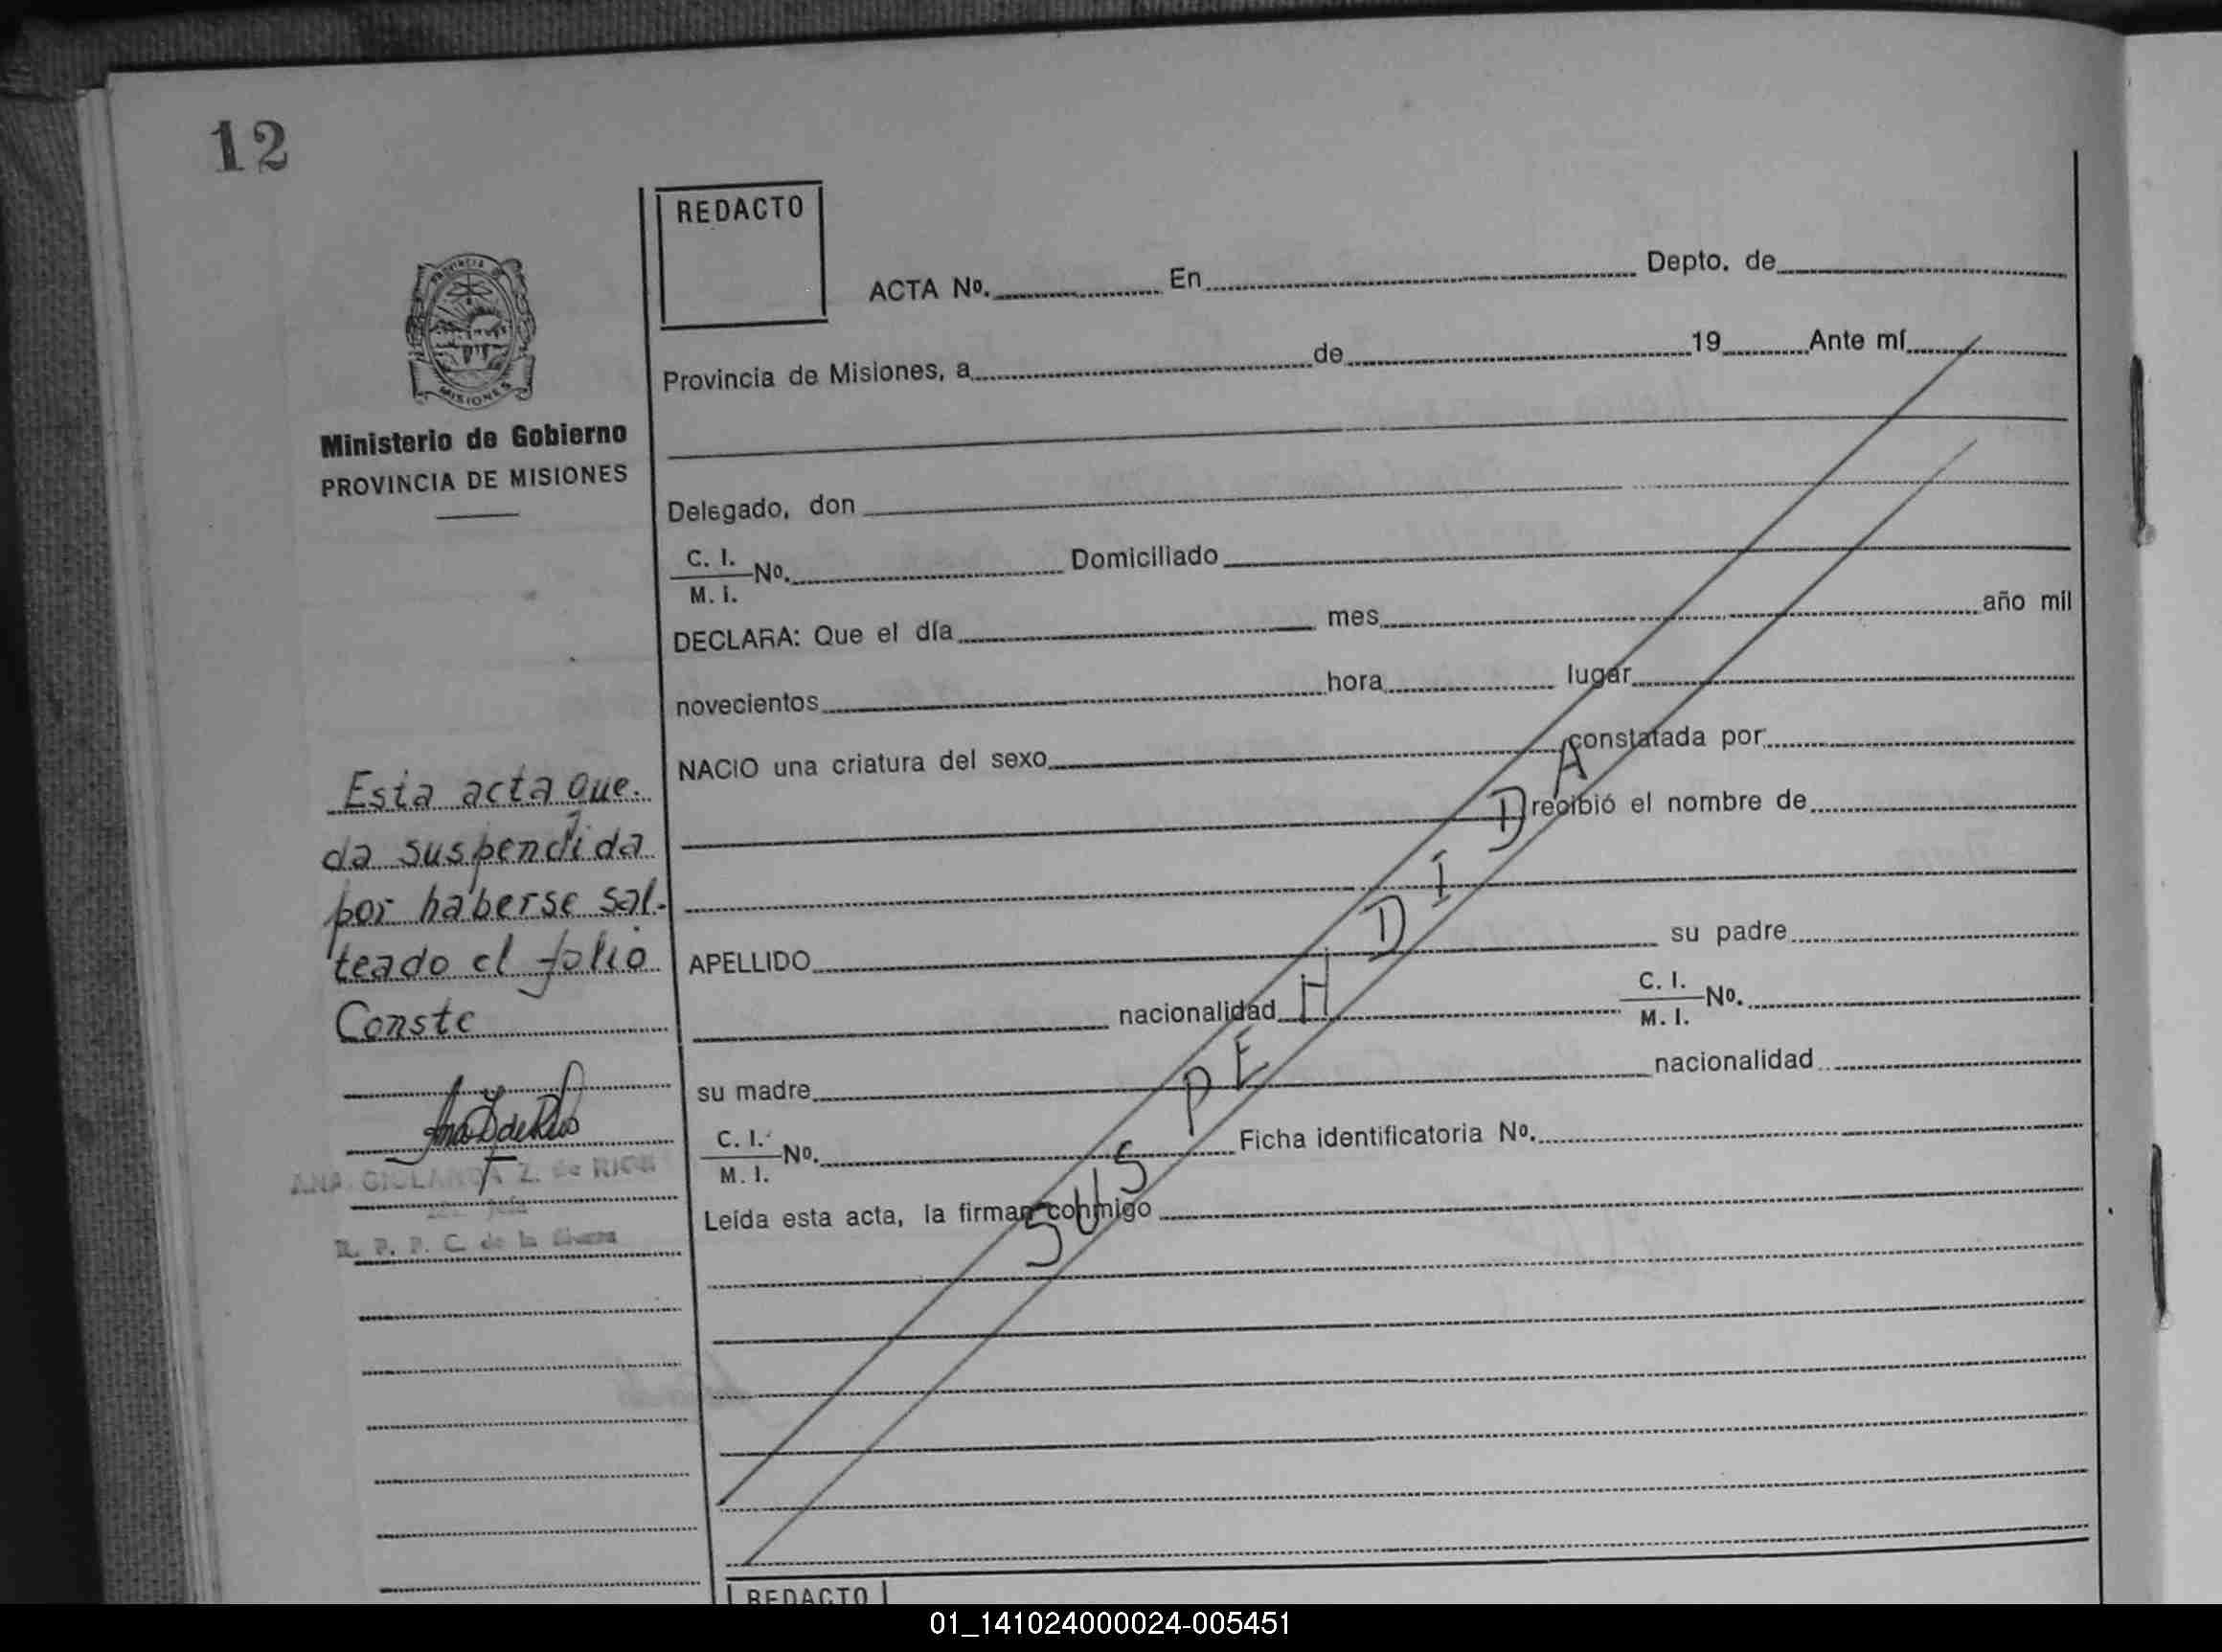 12
REDACTO
ACTA Nº. En Depto. de
Provincia de Misiones, a de 19 Ante mí
PROVINCIA DE
MISIONES
Ministerio de Gobierno
PROVINCIA DE MISIONES
Delegado, don
C. I.
M. I. Nº. Domiciliado
DECLARA: Que el día mes año mil
novecientos hora lugar
NACIO una criatura del sexo constatada por
recibió el nombre de
APELLIDO su padre
nacionalidad C. I.
M. I. Nº.
su madre nacionalidad
C. I.
M. I. Nº. Ficha identificatoria Nº.
Leída esta acta, la firman conmigo
SUSPENDIDA
Esta acta que-
da suspendida
por haberse sal-
teado el folio
Conste
Z. de RIOS
R. P. P. C. de la
REDACTO
01_141024000024-005451